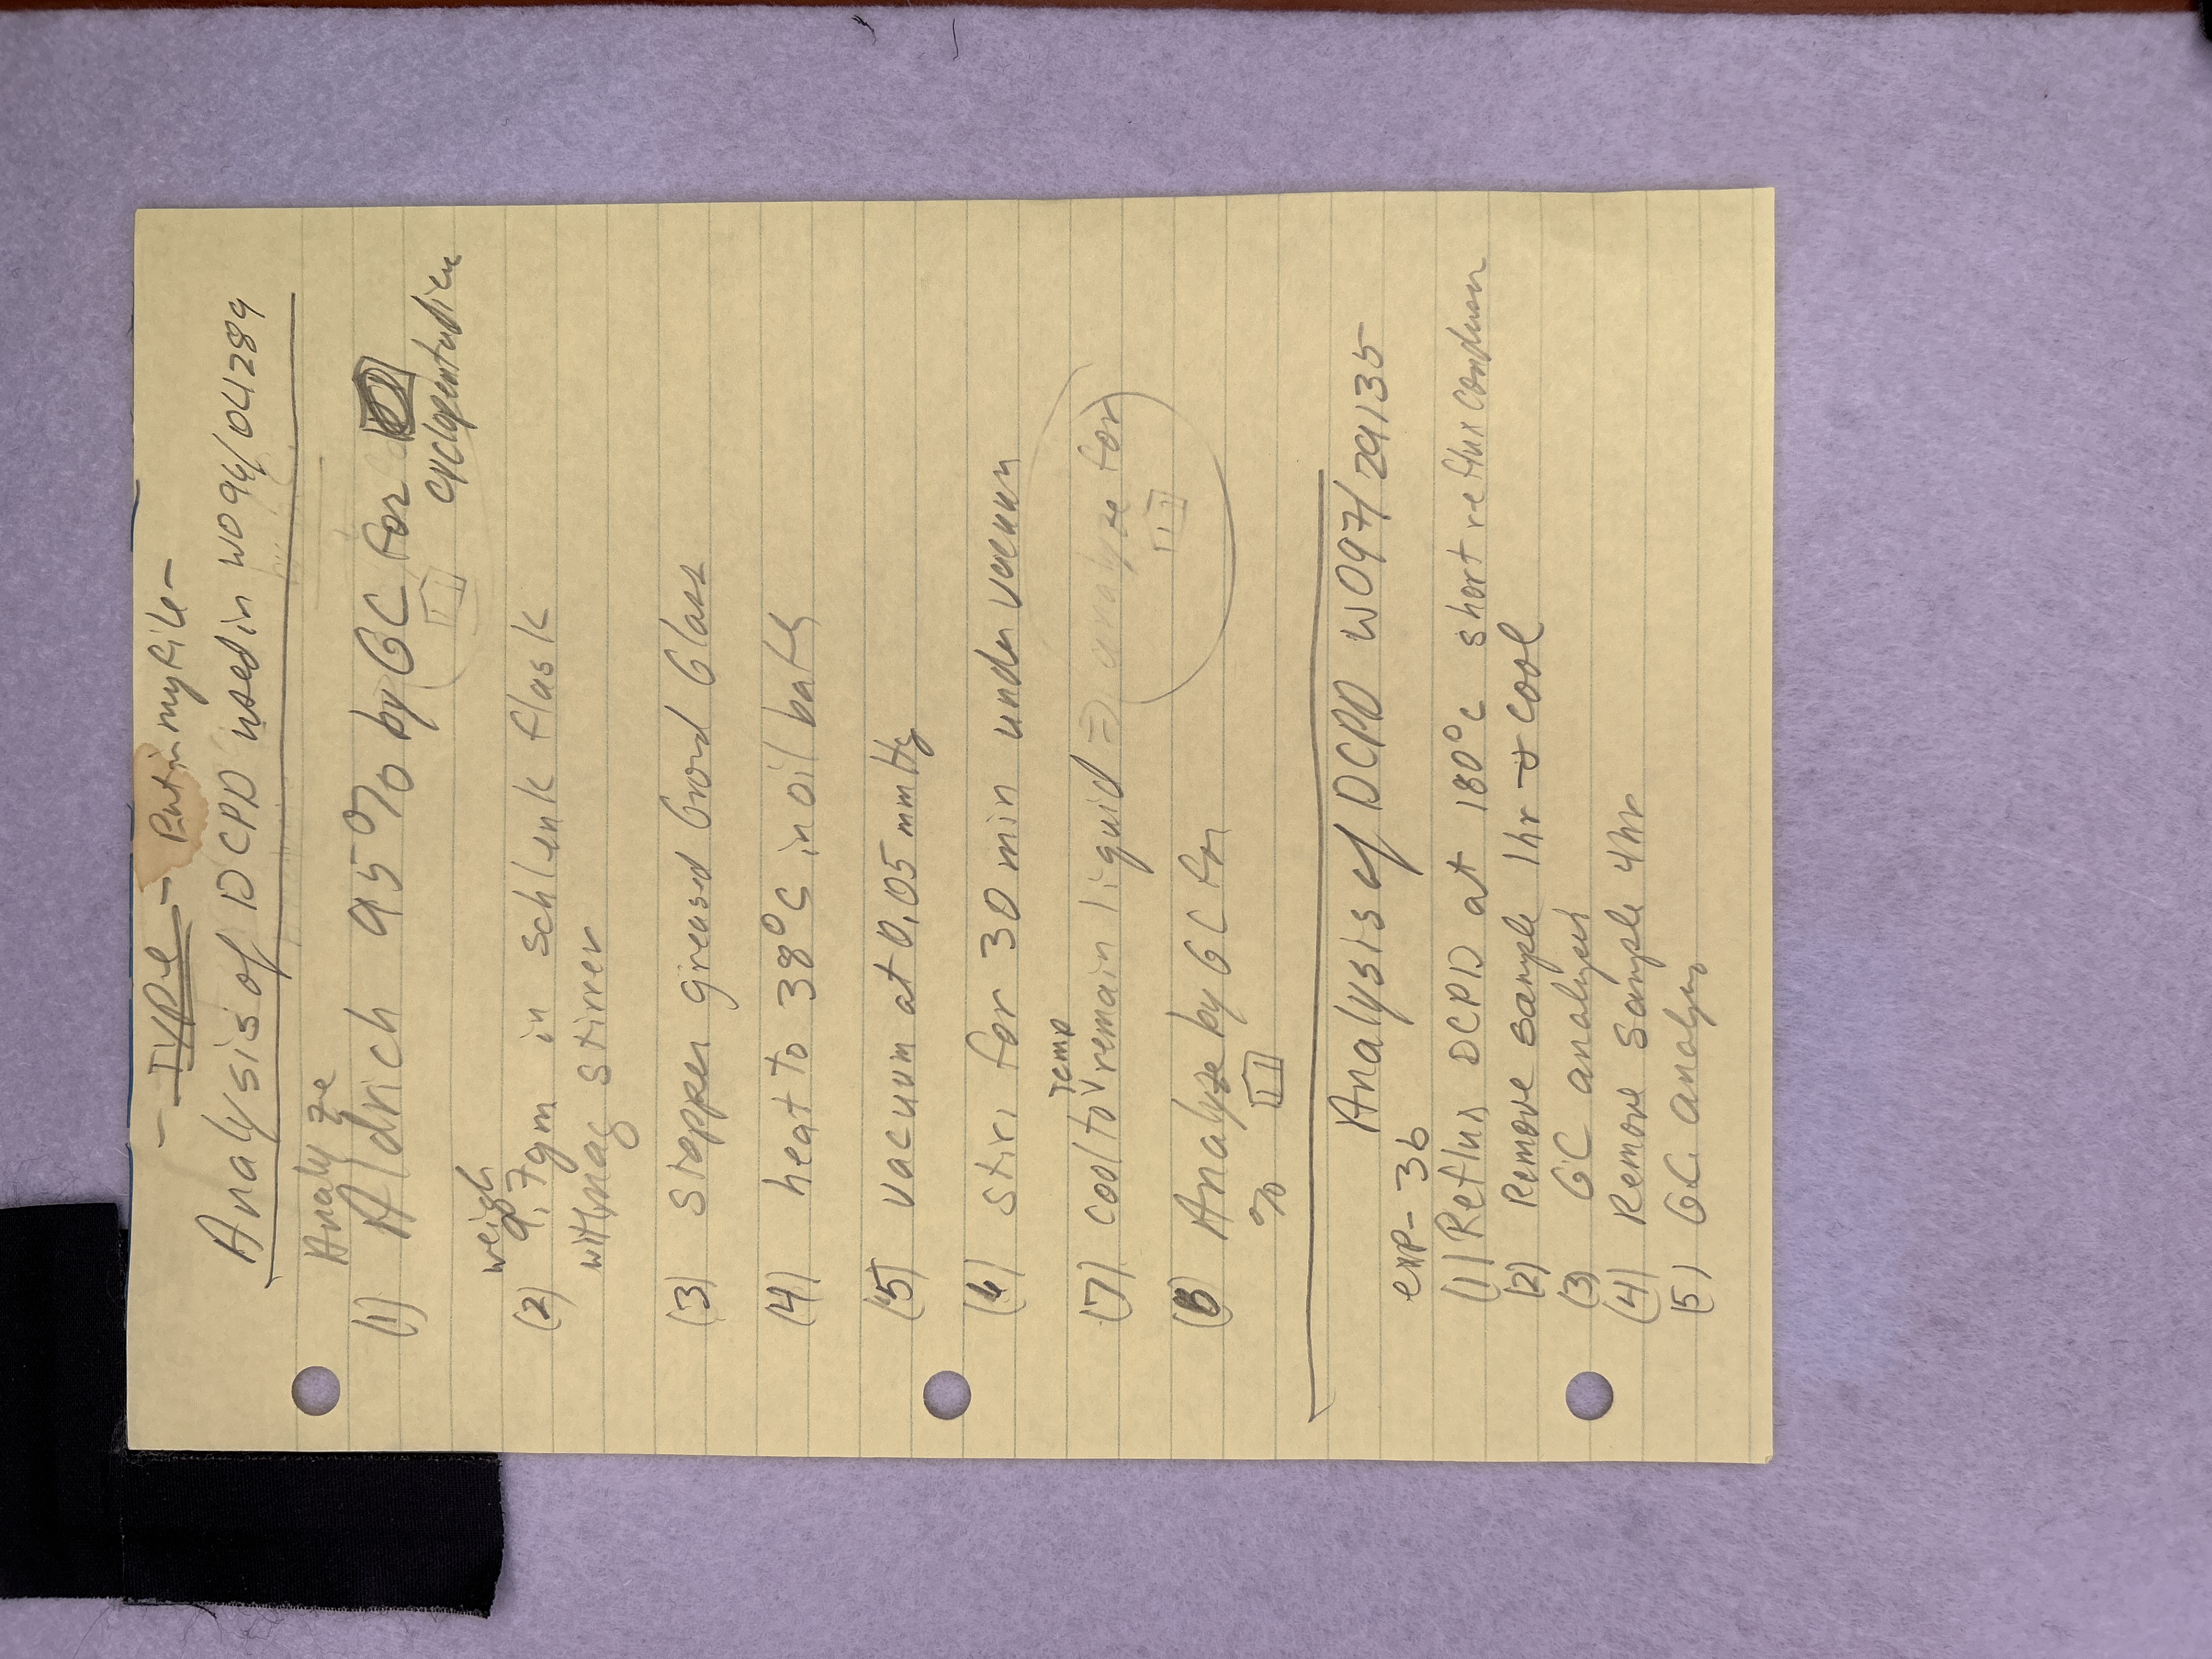 - TYPE - Put in my file -
Analysis of DCPD used in WO 96/04289
Analyze
(1) Aldrich 95% by GC for
cyclopentadiene
weigh
(2) 9.7gm in schlenk flask
with mag stirrer
(3) Stopper greased Ground Glass
(4) heat to 38°C in oil bath
(5) vacuum at 0.05 mm Hg
(6) stir, for 30 min under vacuum
Temp
(7) cool to remain liquid ⇒ analyze for
(8) Analyze by GC for
%
Analysis of DCPD WO97/29135
exp- 3b
(1) Reflux DCPD at 180°C short reflux condenser
(2) Remove sample 1hr → cool
(3) GC analysis
(4) Remove sample 4hr
(5) GC analysis